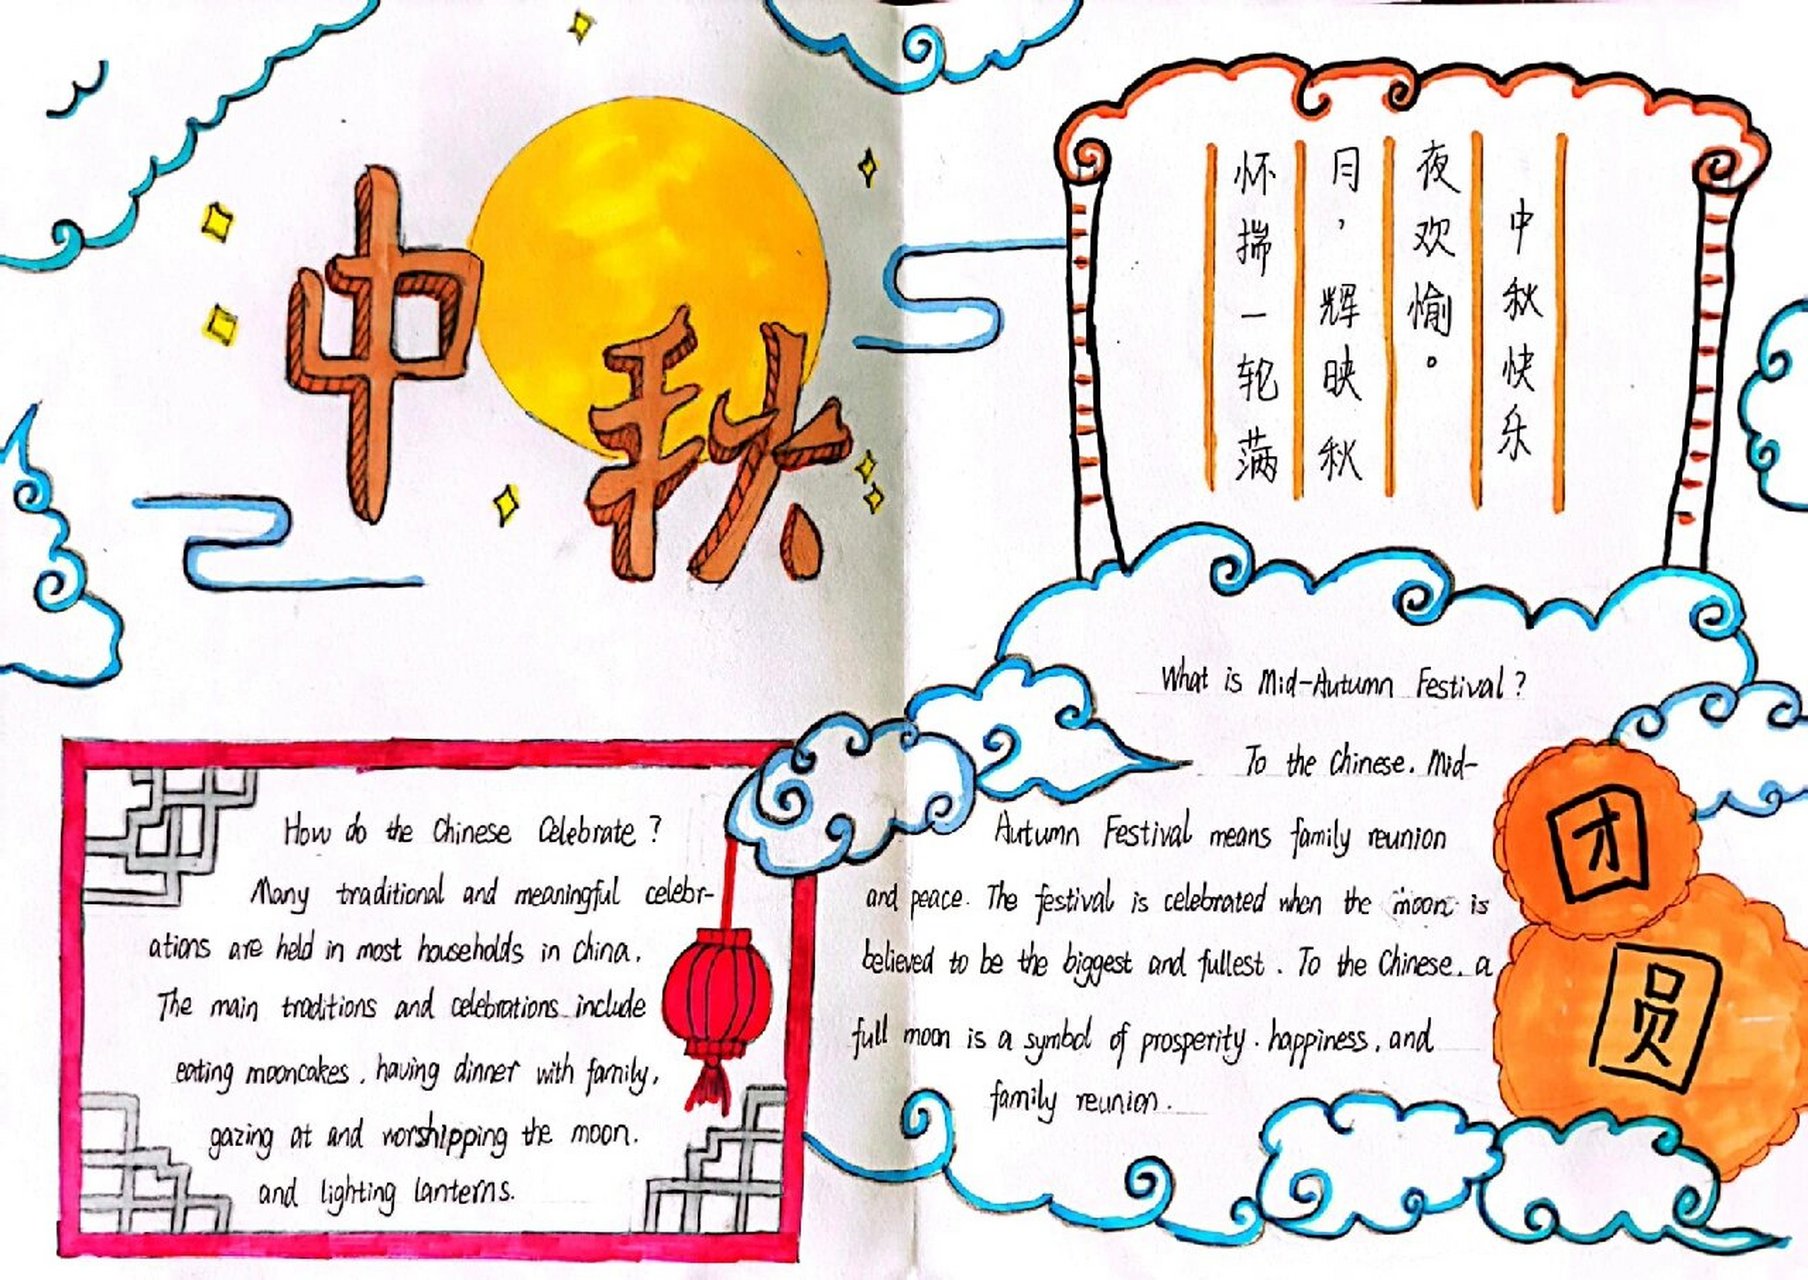 中秋
怀揣一轮满
月，辉映秋
夜欢愉。
中秋快乐
What is Mid-Autumn Festival?
To the Chinese. Mid-
Autumn Festival means family reunion
and peace. The festival is celebrated when the moon is
believed to be the biggest and fullest. To the Chinese. a
full moon is a symbol of prosperity. happiness, and
family reunion.
团
圆
How do the Chinese Celebrate?
Many traditional and meaningful celebr-
ations are held in most households in China.
The main traditions and celebrations include
eating mooncakes, having dinner with family,
gazing at and worshipping the moon.
and lighting lanterns.